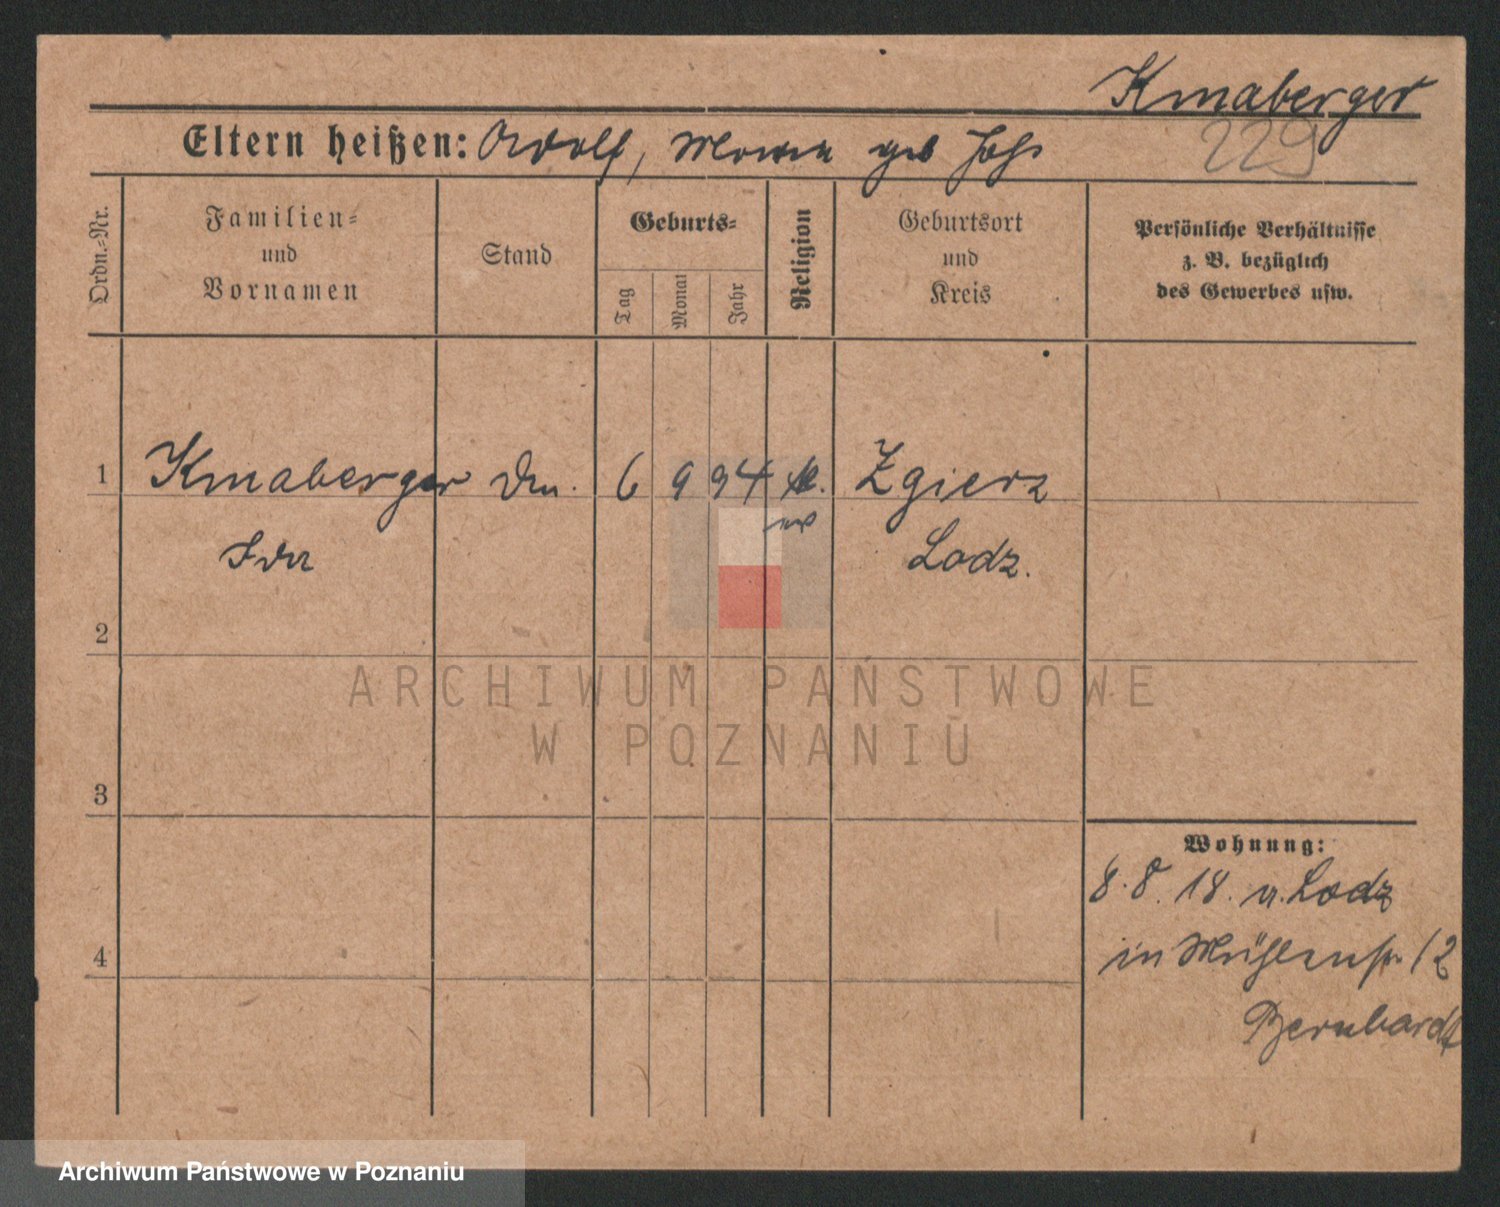 Kmaberger
229
Eltern heißen: Adolf, Maria geb
Ordn.=Nr.
Familien=
und
Vornamen
Stand
Geburts=
Tag
Monat
Jahr
Religion
Geburtsort
und
Kreis
Persönliche Verhältnisse
z. B. bezüglich
des Gewerbes usw.
1 Kmaberger 6 9 94 Zgierz
Ida Lodz.
2
3
4
Wohnung:
8. 8. 18. v. Lodz
in Mühlenstr 12
Bernhardt
ARCHIWUM PAŃSTWOWE
W POZNANIU
Archiwum Państwowe w Poznaniu